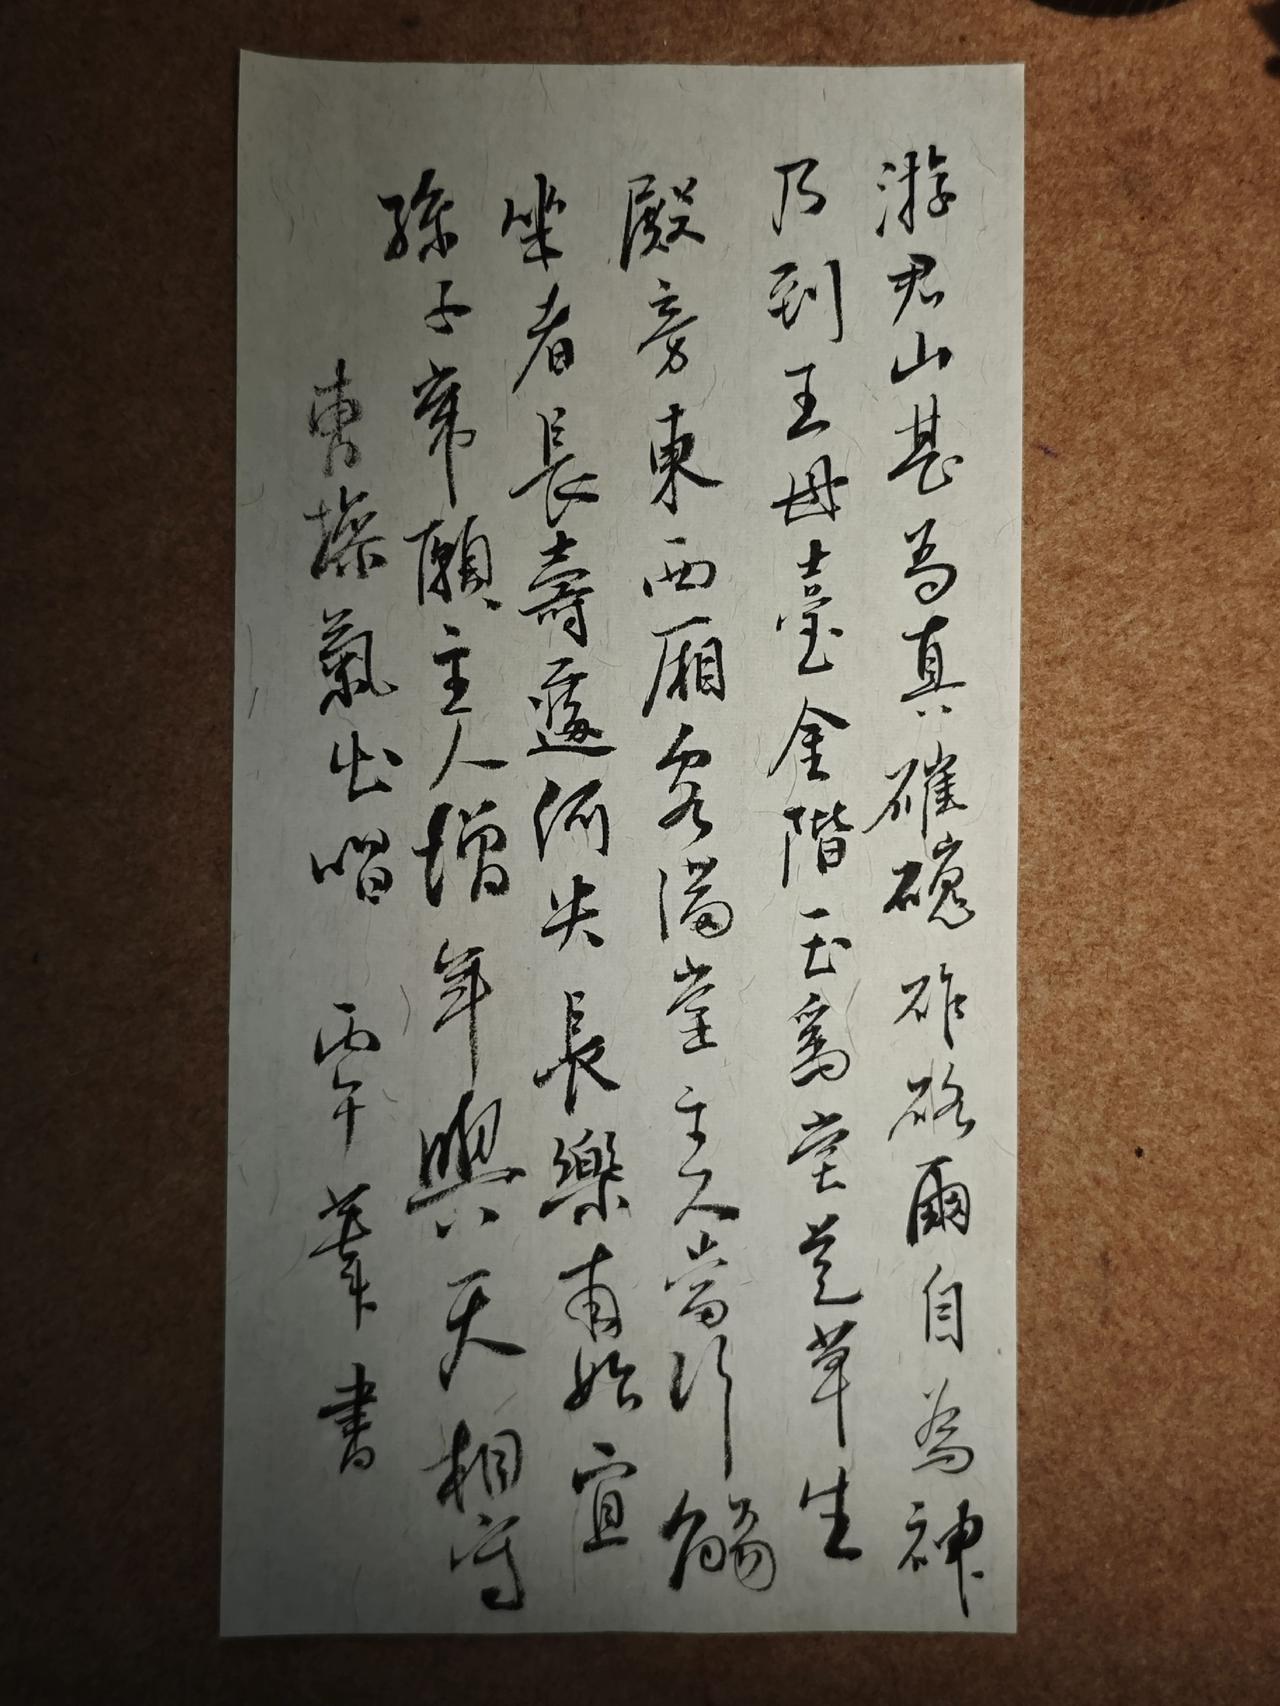 游君山甚為真磪磈砟硌爾自為神
乃到王母臺金階玉為堂芝草生
殿旁東西厢客滿堂主人當行觴
坐者長壽遽何央長樂甫始宜
孫子常願主人增年與天相守
曹操氣出唱 丙午 書